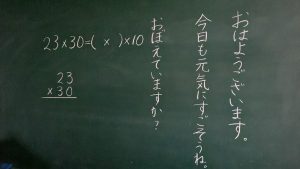 おはようございます。
今日も元気にすごそうね。
おぼえていますか?
23×30=( × )×10
23
×30